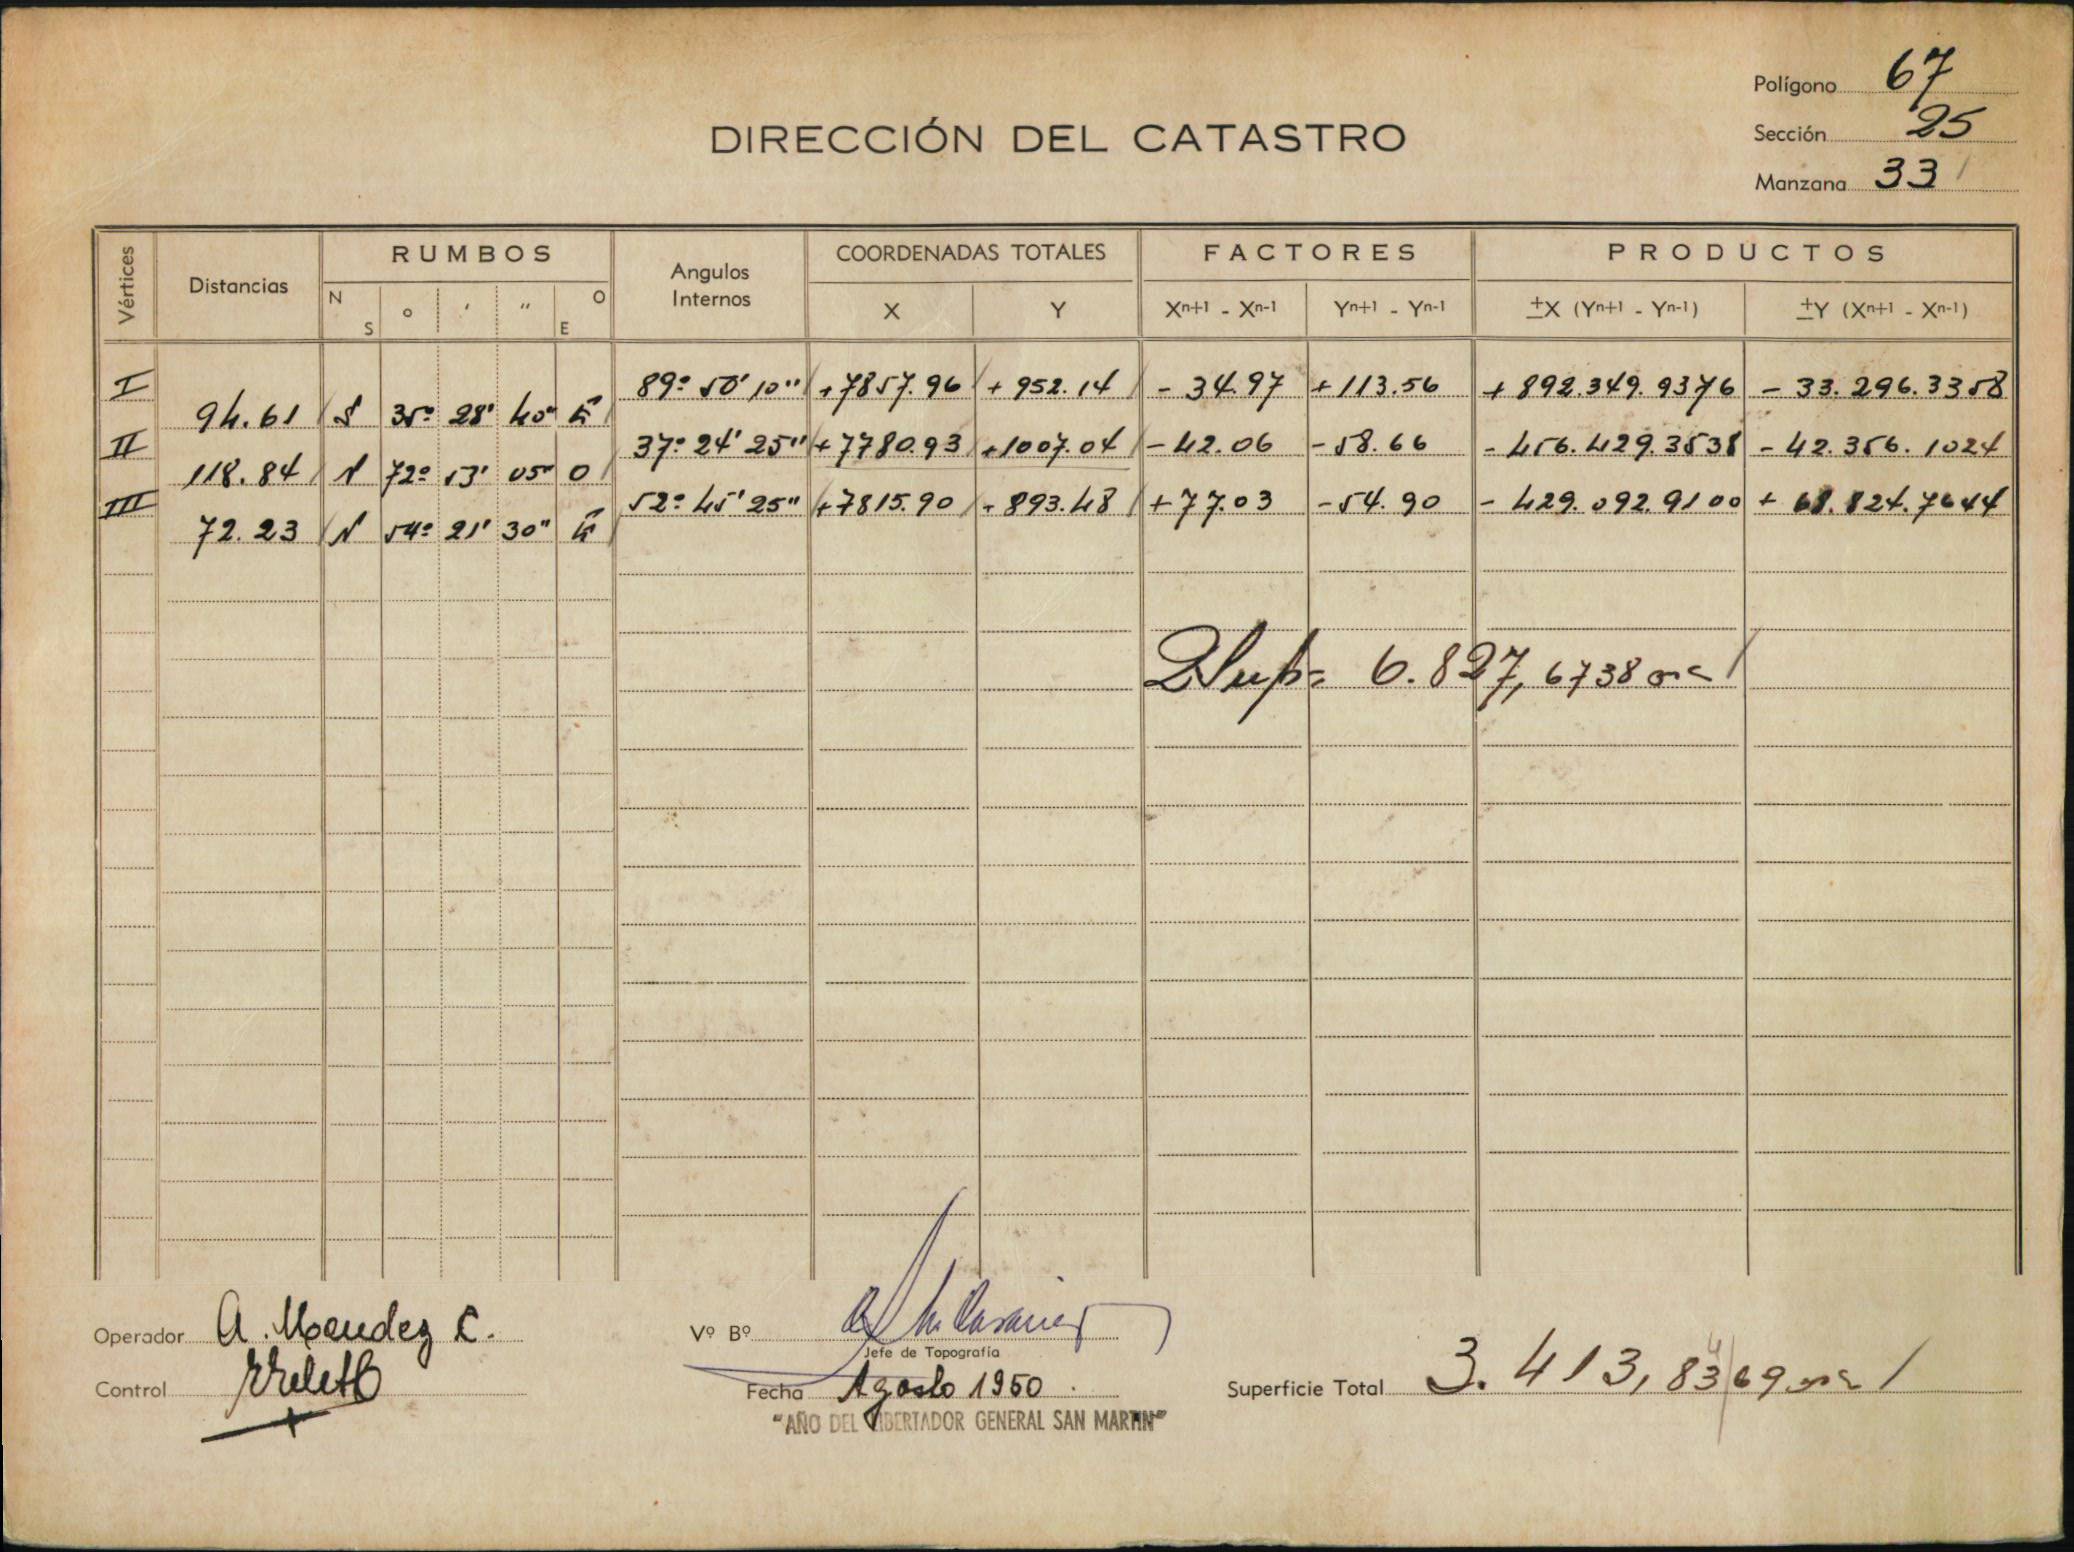 Polígono 67
DIRECCIÓN DEL CATASTRO
Sección 25
Manzana 33
Vértices Distancias RUMBOS Angulos Internos COORDENADAS TOTALES FACTORES PRODUCTOS
N S ° ' " O E X Y Xn+1 - Xn-1 Yn+1 - Yn-1 ±X (Yn+1 - Yn-1) ±Y (Xn+1 - Xn-1)
I 89° 50' 10" +7857.96 + 952.14 - 34.97 +113.56 + 892.349.9376 - 33.296.3358
94.61 S 35° 28' 40" E
II 37° 24' 25" +7780.93 +1007.04 -42.06 -58.66 - 456.429.3538 - 42.356.1024
118.84 N 72° 53' 05" O
III 52° 45' 25" +7815.90 + 893.48 +77.03 -54.90 - 429.092.9100 + 68.824.7644
72.23 N 54° 21' 30" E
2Sup= 6.827,6738 m2
Operador A. Mendez C.
Vº Bº
Jefe de Topografía
Control
Fecha Agosto 1950
Superficie Total 3.413,8369 m2
"AÑO DEL LIBERTADOR GENERAL SAN MARTIN"